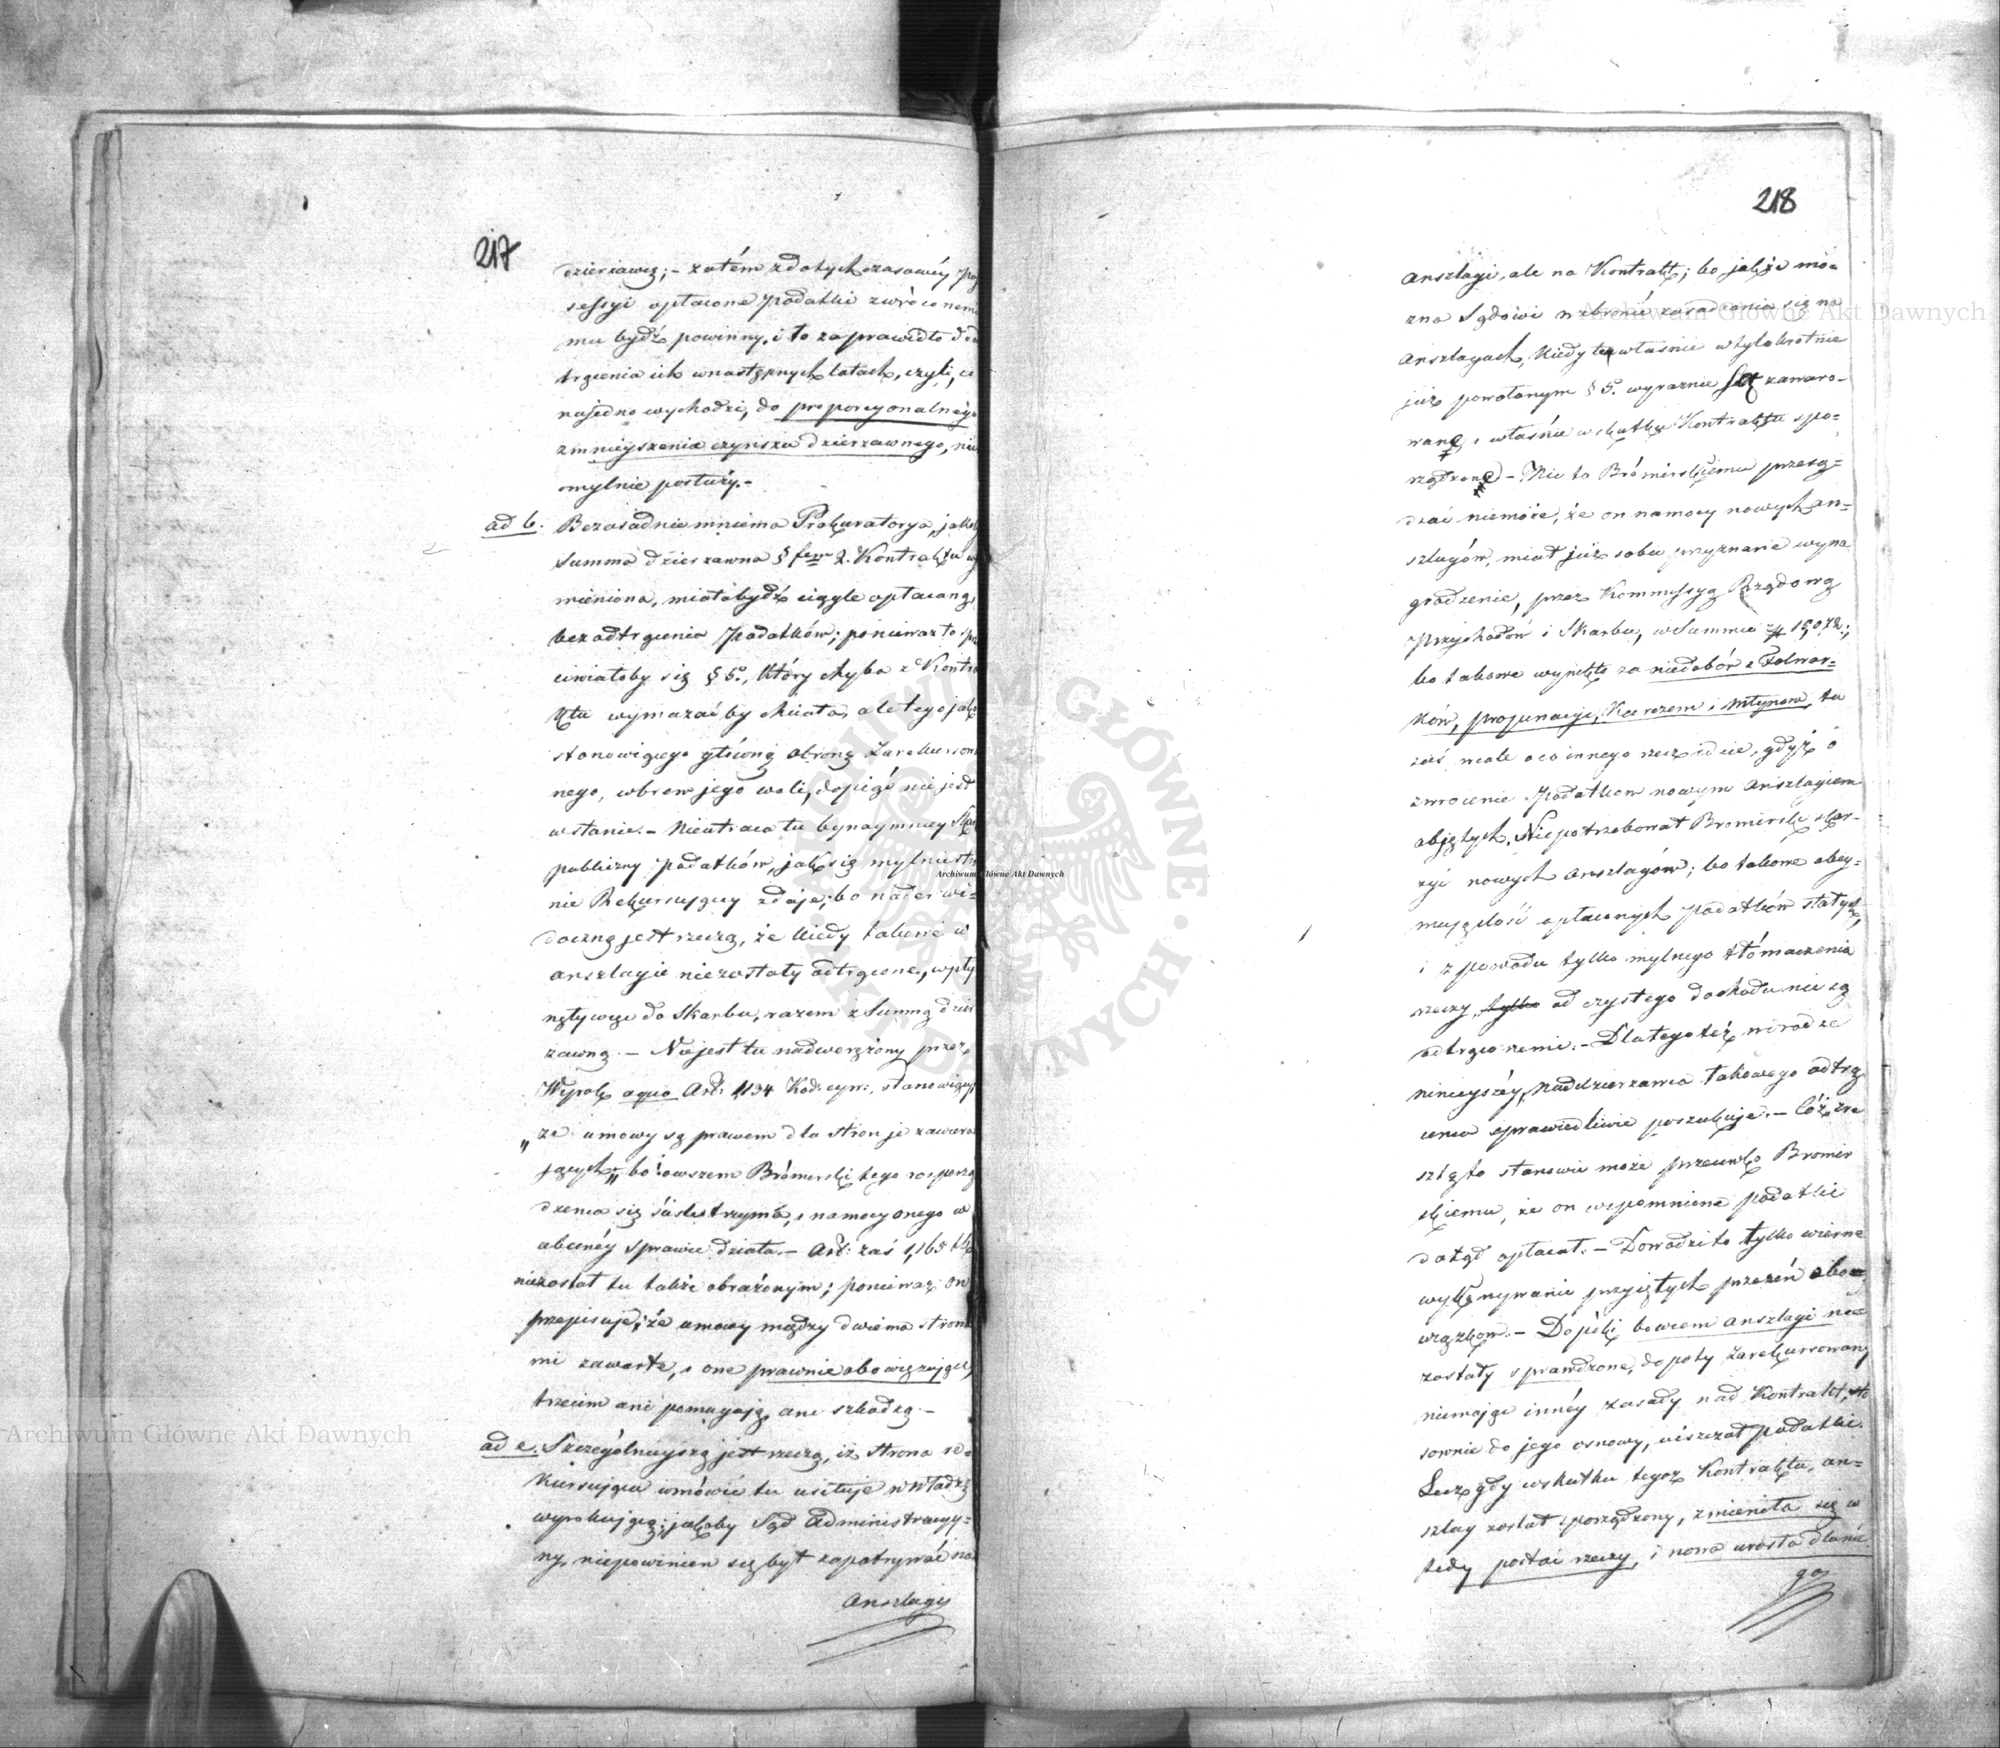 217
dzierżawcę; – zatém z dotychczasowéy Po
sessyi opłacone Podatki zwrócone
mu bydź powinny, i to za prawidło do
trącenia ich w następnych latach, czyli, co
na jedno wychodzi, do proporcyonalnégo
zmnieyszenia czynszu dzierżawnego, nie
omylnie posłuży. –
ad b. Bezzasadnie mniema Prokuratorya, jakoby
Summa dzierżawna § 2. Kontraktu wy
mieniona, miała bydź ciągle opłacaną,
bez odtrącenia Podatków; ponieważ to sprze
ciwiałoby się § 5º, który chyba z Kontra
ktu wymazać by chciała, ale tego jako
stanowiącego główną obronę Zarekursowa
nego, wbrew jego woli, dopiąć nie jest
w stanie. – Nieutraca tu bynaymniey Skarb
publiczny Podatków, jak się mylnie stro
nie Rekursującey zdaje; bo nader wi=
doczną jest rzeczą, że kiedy takowe w
anszlagie niezostały odtrącone, wpły
nęły więc do Skarbu, razem z Summą dzier
żawną. – Niejest tu nadwerężony przez
Wyrok a quo Art: 1134 Kod: cyw:, stanowiący,
„że umowy są prawem dla stron je zawiera
jących„ bo owszem Brómirski tego rosporzą
dzenia się ściśle trzyma, i na mocy onego w
obecnéy sprawie działa. – Art: zaś 1,165 tk
niezostał tu także obrażonym; ponieważ on
przepisuje; że umowy między dwiema strona
mi zawarte, i one prawnie obowiązujące,
trzecim ani pomagają, ani szkodzą. –
ad c. Szczególnieyszą jest rzeczą, iż strona re=
kursująca wmówić tu usiłuje w Władzę
wyrokującą; jakoby Sąd Administracyy=
ny, niepowinien się był zapatrywać na
Anszlagi
218
Anszlagi, ale na Kontrakt; bo jakże mo=
żna Sądowi wzbronić zasadzania się na
Anszlagach, kiedy te właśnie w tylokrotnie
już powołanym § 5º. wyraźnie są zawaro=
wane, i właśnie w skutku Kontraktu spo=
rządzone – Nic to Brómirskiemu przesą=
dzać niemoże, że on na mocy nowych an=
szlagów, miał już sobie przyznane wyna
grodzenie, przez Kommissyą Rządową
Przychodów i Skarbu, w Summie zł 15,072.;
bo takowe wynikło za niedobór z Folwar=
ków, propinacyi, Karczem i młynów, tu
zaś wcale o co innego rzecz idzie, gdyż o
zwrócenie Podatków nowym Anszlagiem
objętych. Niepotrzebował Bromirski skar=
żyć nowych Anszlagów; bo takowe obey=
mują ilość opłaconych Podatków stałych,
i z powodu tylko mylnego tłómaczenia
rzeczy, tylko od czystego dochodu nie są
odtrąconemi. – Dlatego też, w drodze
ninieyszéy, Naddzierżawca takowego odtrą
cenia sprawiedliwie poszukuje. – Cóż zre
sztą to stanowić może przeciwko Bromir
skiemu, że on wspomnione podatki
dotąd opłacał. – Dowodzi to tylko wierne
wykonywanie przyjętych przezeń obo=
wiązków. – Dopóki bowiem anszlagi nie
zostały sprawdzone, dopoty Zarekursowany
niemając innéy zasady nad Kontrakt, sto
sownie do jego osnowy, uiszczał podatki.
Lecz gdy w skutku tegoż Kontraktu, an=
szlag został sporządzony, zmieniła się w
tedy postać rzeczy, i nowa urosła dla nie
go
Archiwum Główne Akt Dawnych
Archiwum Główne Akt Dawnych
Archiwum Główne Akt Dawnych
ARCHIWUM GŁÓWNE AKT DAWNYCH